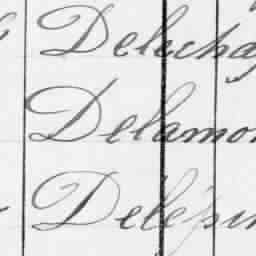 Delecha
Delamo
Delépin